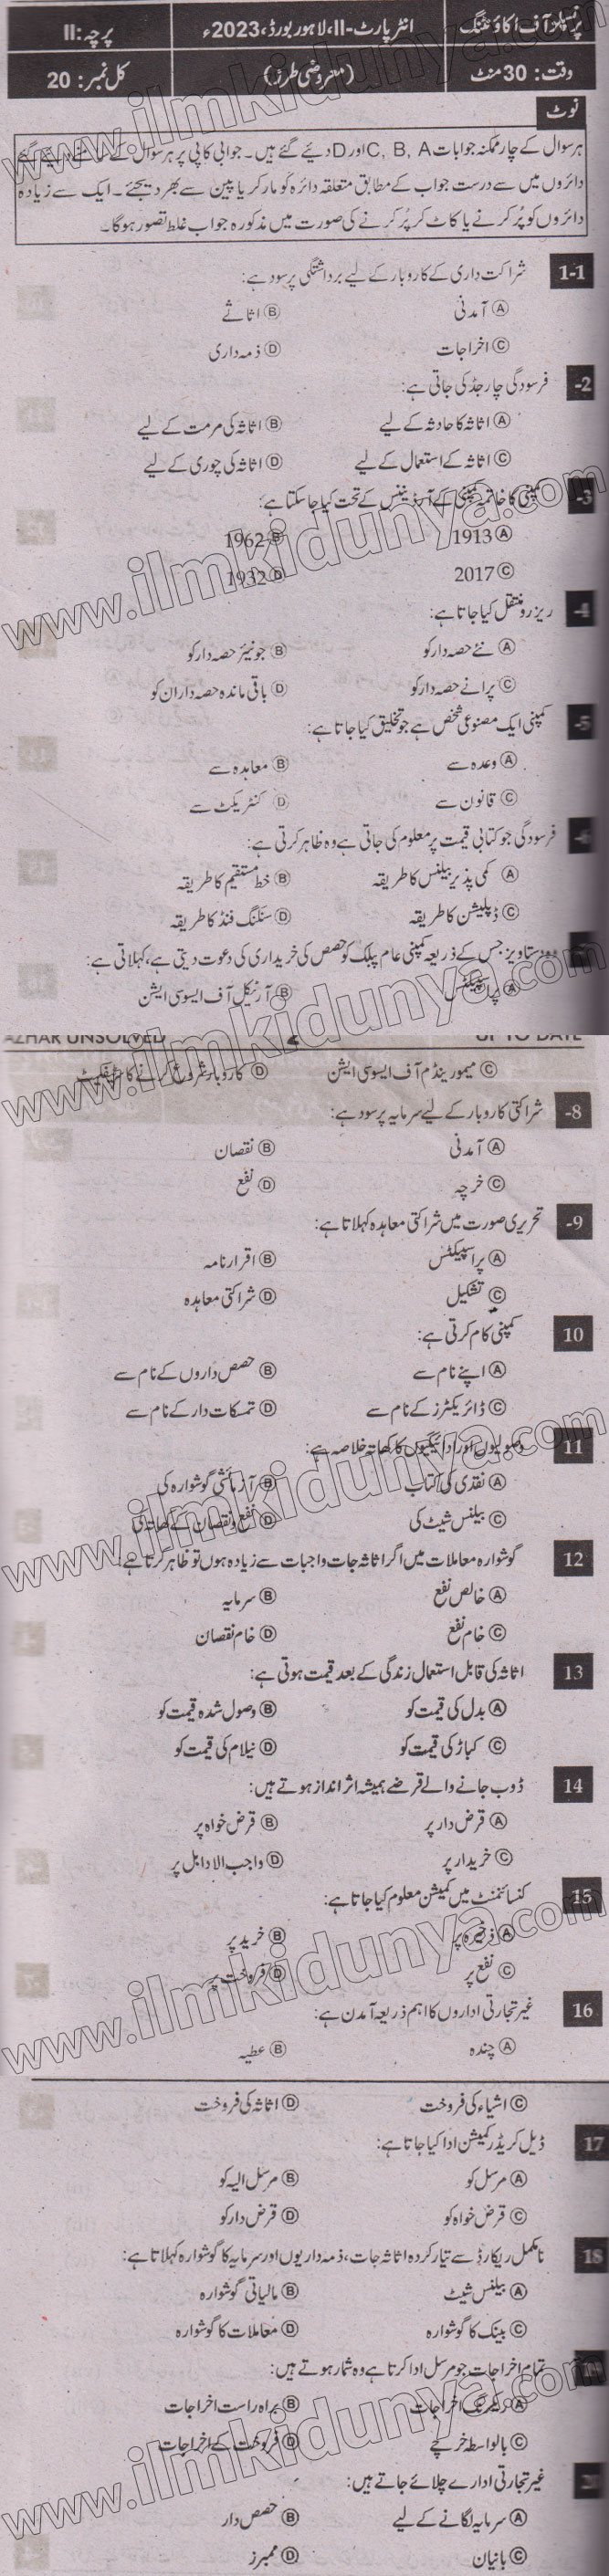 پرنسپلز آف اکاؤنٹنگ
انٹر پارٹ-II، لاہور بورڈ، 2023ء
پرچہ: II
وقت: 30 منٹ
(معروضی طرز)
کل نمبر: 20
نوٹ
ہر سوال کے چار ممکنہ جوابات C, B, A اور D دیئے گئے ہیں۔ جوابی کاپی پر ہر سوال کے سامنے دیئے گئے
دائروں میں سے درست جواب کے مطابق متعلقہ دائرہ کو مارکر یا پین سے بھر دیجئے۔ ایک سے زیادہ
دائروں کو پُر کرنے یا کاٹ کر پُر کرنے کی صورت میں مذکورہ جواب غلط تصور ہوگا۔
1-1 شراکت داری کے کاروبار کے لیے برداشتگی پر سود ہے:
Ⓐ آمدنی Ⓑ اثاثے
Ⓒ اخراجات Ⓓ ذمہ داری
-2 فرسودگی چارجڈ کی جاتی ہے:
Ⓐ اثاثہ کا حادثہ کے لیے Ⓑ اثاثہ کی مرمت کے لیے
Ⓒ اثاثہ کے استعمال کے لیے Ⓓ اثاثہ کی چوری کے لیے
-3 کمپنی کا خاتمہ کمپنی کے آرڈیننس کے تحت کیا جاسکتا ہے:
Ⓐ 1913 Ⓑ 1962
Ⓒ 2017 Ⓓ 1932
-4 ریزرو منتقل کیا جاتا ہے:
Ⓐ نئے حصہ دار کو Ⓑ جونیئر حصہ دار کو
Ⓒ پرانے حصہ دار کو Ⓓ باقی ماندہ حصہ داران کو
-5 کمپنی ایک مصنوعی شخص ہے جو تخلیق کیا جاتا ہے:
Ⓐ وعدہ سے Ⓑ معاہدہ سے
Ⓒ قانون سے Ⓓ کنٹریکٹ سے
-6 فرسودگی جو کتابی قیمت پر معلوم کی جاتی ہے وہ ظاہر کرتی ہے:
Ⓐ کمی پذیر بیلنس کا طریقہ Ⓑ خط مستقیم کا طریقہ
Ⓒ ڈپلیشن کا طریقہ Ⓓ سنکنگ فنڈ کا طریقہ
وہ دستاویز جس کے ذریعہ کمپنی عام پبلک کو حصص کی خریداری کی دعوت دیتی ہے، کہلاتی ہے:
Ⓐ پراسپیکٹس Ⓑ آرٹیکل آف ایسوسی ایشن
AZHAR UNSOLVED UP TO DATE
Ⓒ میمورینڈم آف ایسوسی ایشن Ⓓ کاروبار شروع کرنے کا سرٹیفکیٹ
-8 شراکتی کاروبار کے لیے سرمایہ پر سود ہے:
Ⓐ آمدنی Ⓑ نقصان
Ⓒ خرچہ Ⓓ نفع
-9 تحریری صورت میں شراکتی معاہدہ کہلاتا ہے:
Ⓐ پراسپیکٹس Ⓑ اقرار نامہ
Ⓒ تشکیل Ⓓ شراکتی معاہدہ
10 کمپنی کام کرتی ہے:
Ⓐ اپنے نام سے Ⓑ حصص داروں کے نام سے
Ⓒ ڈائریکٹرز کے نام سے Ⓓ تمسکات دار کے نام سے
11 وصولیوں اور ادائیگیوں کا کھاتہ خلاصہ ہے:
Ⓐ نقدی کی کتاب Ⓑ آزمائشی گوشوارہ کی
Ⓒ بیلنس شیٹ کی Ⓓ نفع و نقصان کے کھاتہ کی
12 گوشوارہ معاملات میں اگر اثاثہ جات واجبات سے زیادہ ہوں تو ظاہر کرتا ہے:
Ⓐ خالص نفع Ⓑ سرمایہ
Ⓒ خام نفع Ⓓ خام نقصان
13 اثاثہ کی قابل استعمال زندگی کے بعد قیمت ہوتی ہے:
Ⓐ بدل کی قیمت کو Ⓑ وصول شدہ قیمت کو
Ⓒ کباڑ کی قیمت کو Ⓓ نیلام کی قیمت کو
14 ڈوب جانے والے قرضے ہمیشہ اثر انداز ہوتے ہیں:
Ⓐ قرض دار پر Ⓑ قرض خواہ پر
Ⓒ خریدار پر Ⓓ واجب الادا بل پر
15 کنسائنمنٹ میں کمیشن معلوم کیا جاتا ہے:
Ⓐ ذخیرہ پر Ⓑ خرید پر
Ⓒ نفع پر Ⓓ فروخت پر
16 غیر تجارتی اداروں کا اہم ذریعہ آمدن ہے:
Ⓐ چندہ Ⓑ عطیہ
Ⓒ اشیاء کی فروخت Ⓓ اثاثہ کی فروخت
17 ڈیل کریڈر کمیشن ادا کیا جاتا ہے:
Ⓐ مرسل کو Ⓑ مرسل الیہ کو
Ⓒ قرض خواہ کو Ⓓ قرض دار کو
18 نامکمل ریکارڈ سے تیار کردہ اثاثہ جات، ذمہ داریوں اور سرمایہ کا گوشوارہ کہلاتا ہے:
Ⓐ بیلنس شیٹ Ⓑ مالیاتی گوشوارہ
Ⓒ بینک کا گوشوارہ Ⓓ معاملات کا گوشوارہ
19 تمام اخراجات جو مرسل ادا کرتا ہے وہ شمار ہوتے ہیں:
Ⓐ ریکرنگ اخراجات Ⓑ براہ راست اخراجات
Ⓒ بالواسطہ خرچے Ⓓ فروخت کے اخراجات
20 غیر تجارتی ادارے چلائے جاتے ہیں:
Ⓐ سرمایہ لگانے کے لیے Ⓑ حصص دار
Ⓒ بانیان Ⓓ ممبرز
www.ilmkidunya.com
www.ilmkidunya.com
www.ilmkidunya.com
www.ilmkidunya.com
www.ilmkidunya.com
www.ilmkidunya.com